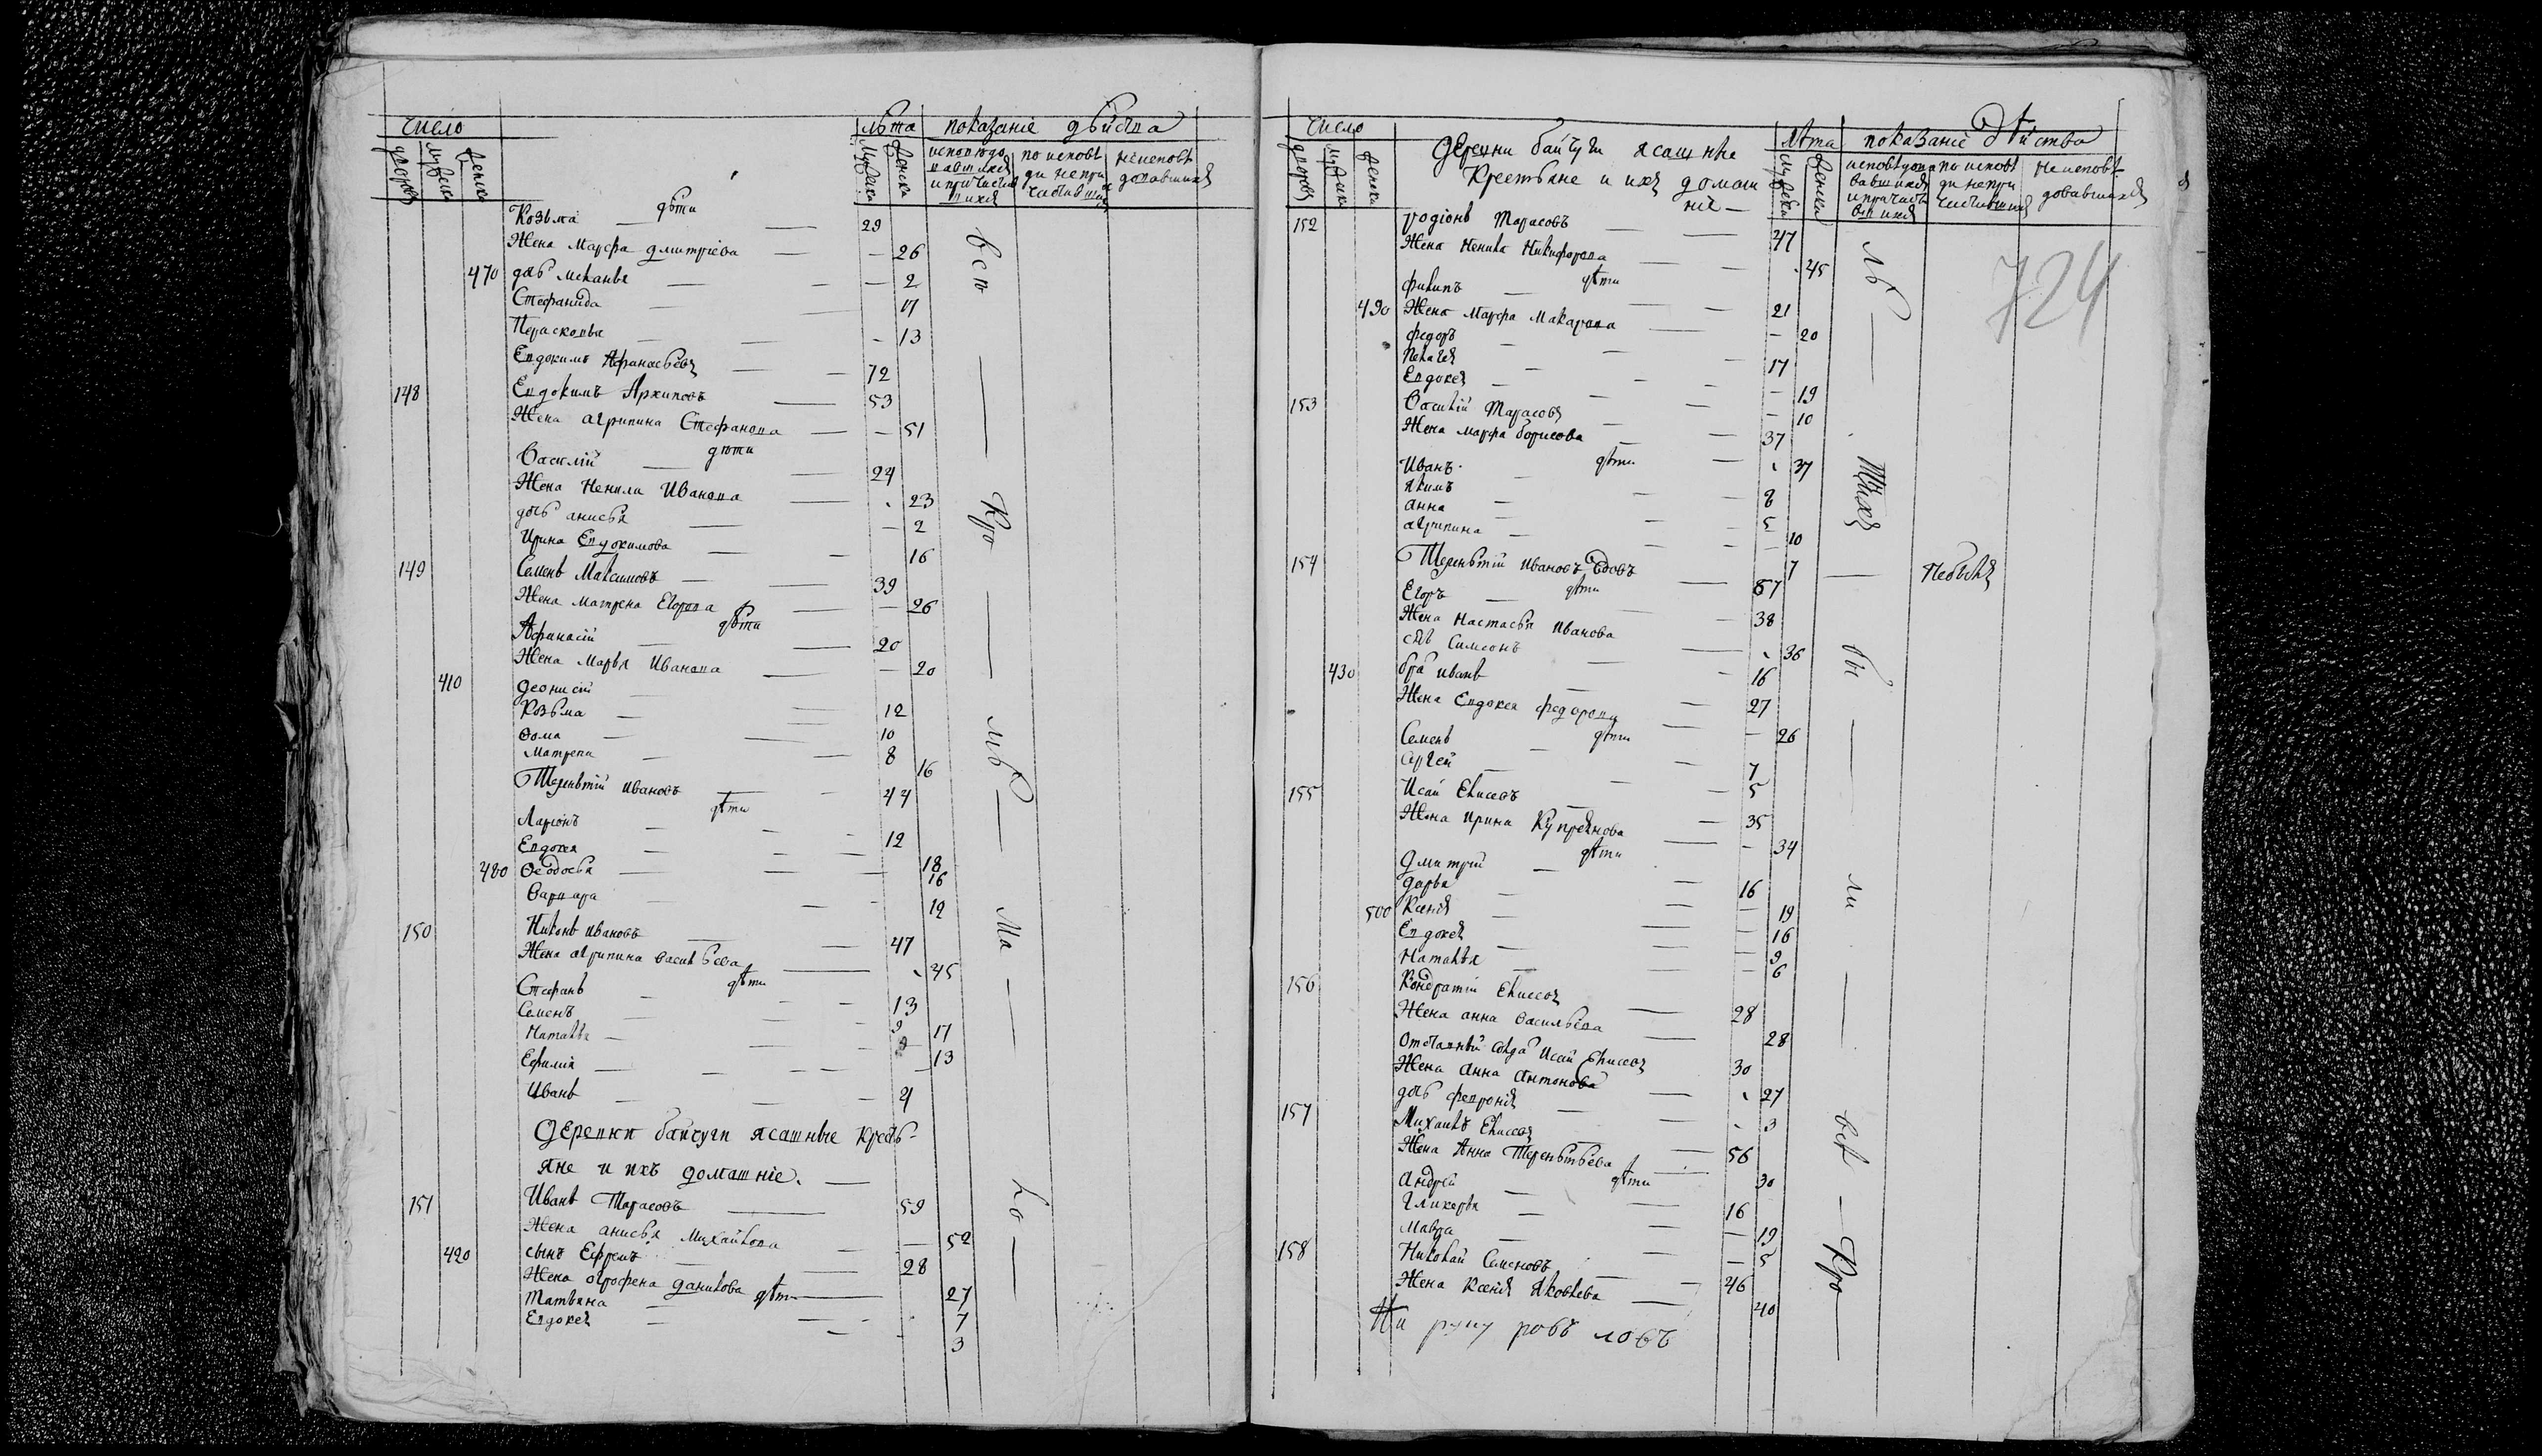 число
лѣта показаніе дѣйства
дворовъ мужеска женска
мужеска женска
исповѣдо
вавшихся
и причастив
шихся
по исповѣ
ди непри
частивших
неисповѣ
довавшихся
дѣти
Козьма 29
Жена Марфа Дмитріева 26
470 дочь Меланья 2
Стефанида 17
Пераскопья 13
Евдокимъ Афанасьевъ 72
148 Евдокимъ Архиповъ 53
Жена Агрипина Стефанова 51
дѣти
Василій 24
Жена Ненила Иванова 23
дочь анисья 2
Ирина Евдокимова 16
149 Семенъ Максимовъ 39
Жена Матрена Егорова 26
дѣти
Афанасій 20
Жена Марья Иванова 20
410 Деонисій 12
Козьма 10
Ѳома 8
Матрена 16
Терентій Ивановъ 44
дѣти
Ларіонъ 12
Евдокея 18
480 Ѳедосья 16
Варвара 12
150 Никонъ Ивановъ 47
Жена агрипина Васильева 45
дѣти
Стефанъ 13
Семенъ 9
Наталья 17
Ефимія 13
Иванъ 4
Деревни Байчуги ясашные кресть-
яне и ихъ домашніе.
151 Иванъ Тарасовъ 59
Жена анисья Михайлова 52
420 сынъ Ефремъ 28
Жена огрофена Данилова дѣти 27
Татьяна 7
Евдокея 3
всѣ Кро мѣ Ма Ло
число
Деревни Байчуги ясашные
Крестьяне и ихъ домаш
ніе
лѣта показаніе дѣйства
дворовъ мужеска женска
мужеска женска
исповѣдо
вавшихся
и причасти
вшихся
по исповѣ
ди непри
частившихся
неисповѣ
довавшихся
724
152 Родіонъ Тарасовъ 47
Жена Ненила Никифорова 45
дѣти
Филипъ 21
490 Жена Марфа Макарова 20
Федоръ 17
Пелагея 19
Евдокея 10
153 Василій Тарасовъ 37
Жена Марфа Борисова 37
дѣти
Иванъ 8
Якимъ 5
Анна 10
агрипина 7
154 Терентій Ивановъ вдовъ 67
дѣти
Егоръ 38
Жена Настасья Иванова 36
сынъ Симеонъ 16
430 братъ Иванъ 27
Жена Евдокея Федорова 26
дѣти
Семенъ 7
Сергей 5
155 Исай Елисеевъ 35
Жена Ирина Купреянова 34
дѣти
Дмитрій 16
Дарья 19
500 Ксенія 16
Евдокея 9
Наталья 6
156 Кондратій Елисеевъ 28
Жена Анна Васильева 28
Отставный солда Исай Елисеевъ 30
Жена Анна Антонова 27
дочь Февронія 3
157 Михаилъ Елисеевъ 56
Жена Анна Терентьева 30
дѣти
Андрей 16
Гликерья 19
Мавра 5
158 Николай Семеновъ 46
Жена Ксенія Яковлева 40
лѣ тнихъ бы ли всѣ Кро